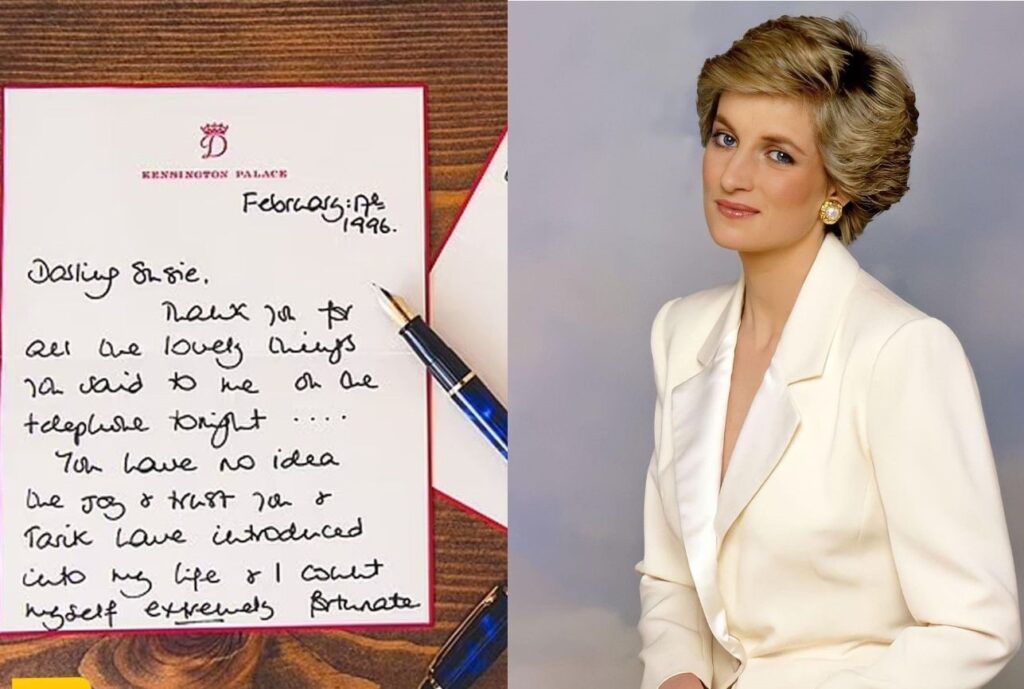 D
KENSINGTON PALACE
February: 17th
1996.
Darling Susie,
Thank you for
all the lovely things
you said to me on the
telephone tonight ....
You have no idea
the joy & trust you &
Tarik have introduced
into my life & I count
myself extremely fortunate